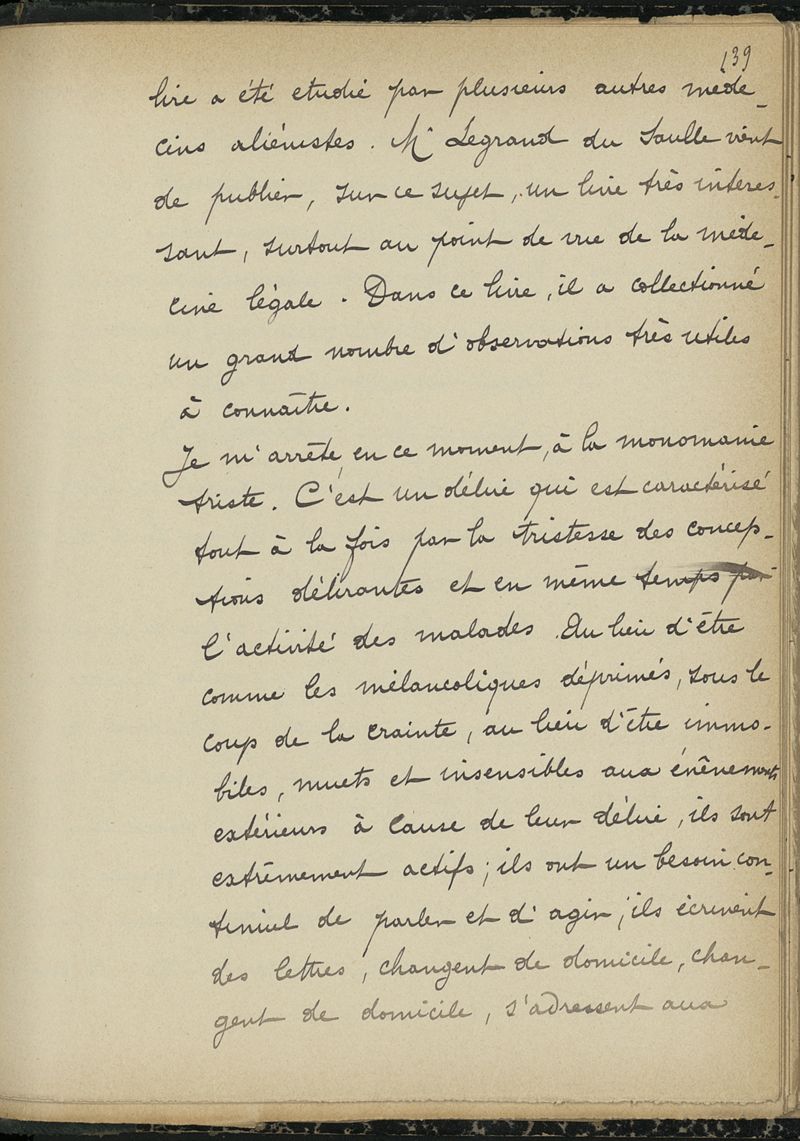 139
lire a été etudié par plusieurs autres méde-
cins aliénistes. Mr Legrand du Saulle vient
de publier, sur ce sujet, un livre très intéres-
sant, surtout au point de vue de la méde-
cine légale. Dans ce livre, il a collectionné
un grand nombre d'observations très utiles
à connaître.
Je m'arrête, en ce moment, à la monomanie
triste. C'est un délire qui est caractérisé
tout à la fois par la tristesse des concep-
tions délirantes et en même temps par
l'activité des malades. Au lieu d'être
comme les mélancoliques déprimés, sous le
coup de la crainte, au lieu d'être immo-
biles, muets et insensibles aux évènements
extérieurs à cause de leur délire, ils sont
extrêmement actifs; ils ont un besoin con-
tinuel de parler et d'agir; ils écrivent
des lettres, changent de domicile, chan-
gent de domicile, s'adressent aux